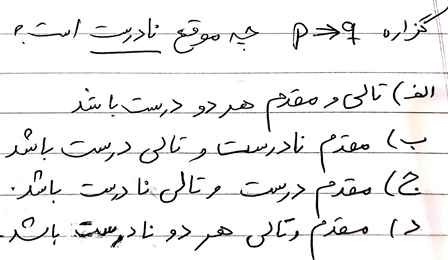 گزاره p⇒q چه موقع نادرست است؟
الف) تالی و مقدم هر دو درست باشد
ب) مقدم نادرست و تالی درست باشد
ج) مقدم درست و تالی نادرست باشد.
د) مقدم و تالی هر دو نادرست باشد.